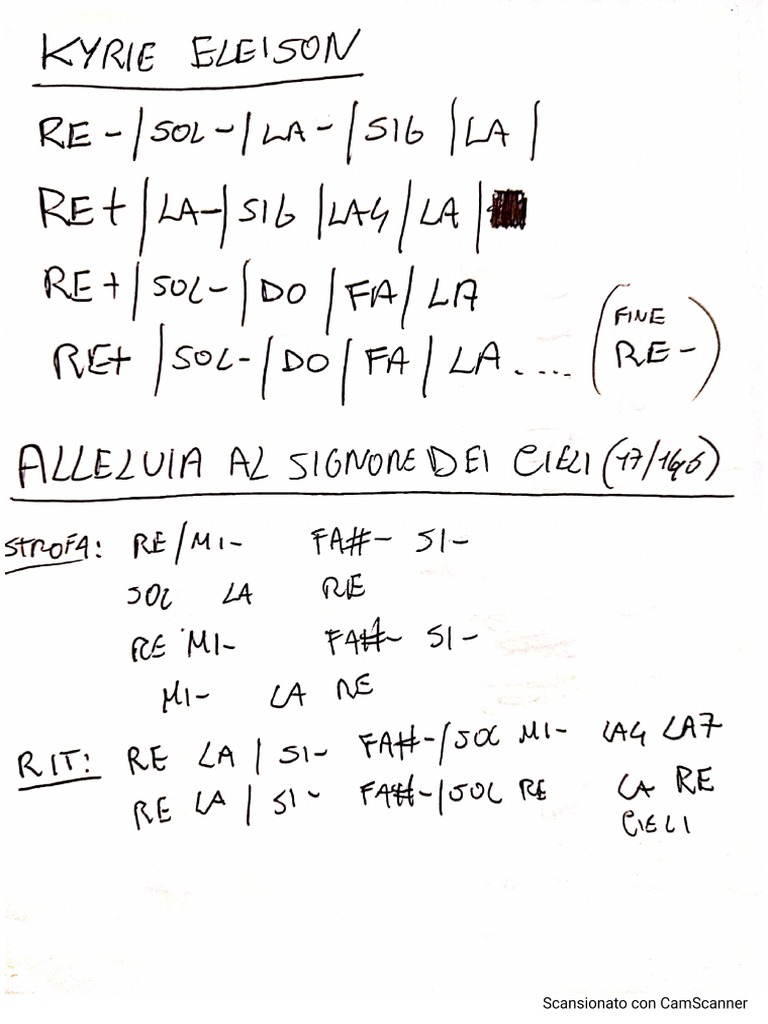 KYRIE ELEISON
RE - | SOL - | LA - | SIb | LA |
RE+ | LA- | SIb | LA4 | LA |
RE+ | SOL- | DO | FA | LA
RE+ | SOL- | DO | FA | LA ..... (FINE RE -)
ALLELUIA AL SIGNORE DEI CIELI (17/
STROFA: RE/MI- FA#- SI-
SOL LA RE
RE MI- FA#- SI-
MI- LA RE
RIT: RE LA | SI- FA#-/SOL MI- LA4 LA7
RE LA | SI- FA#-/SOL RE LA RE
CIELI
Scansionato con CamScanner